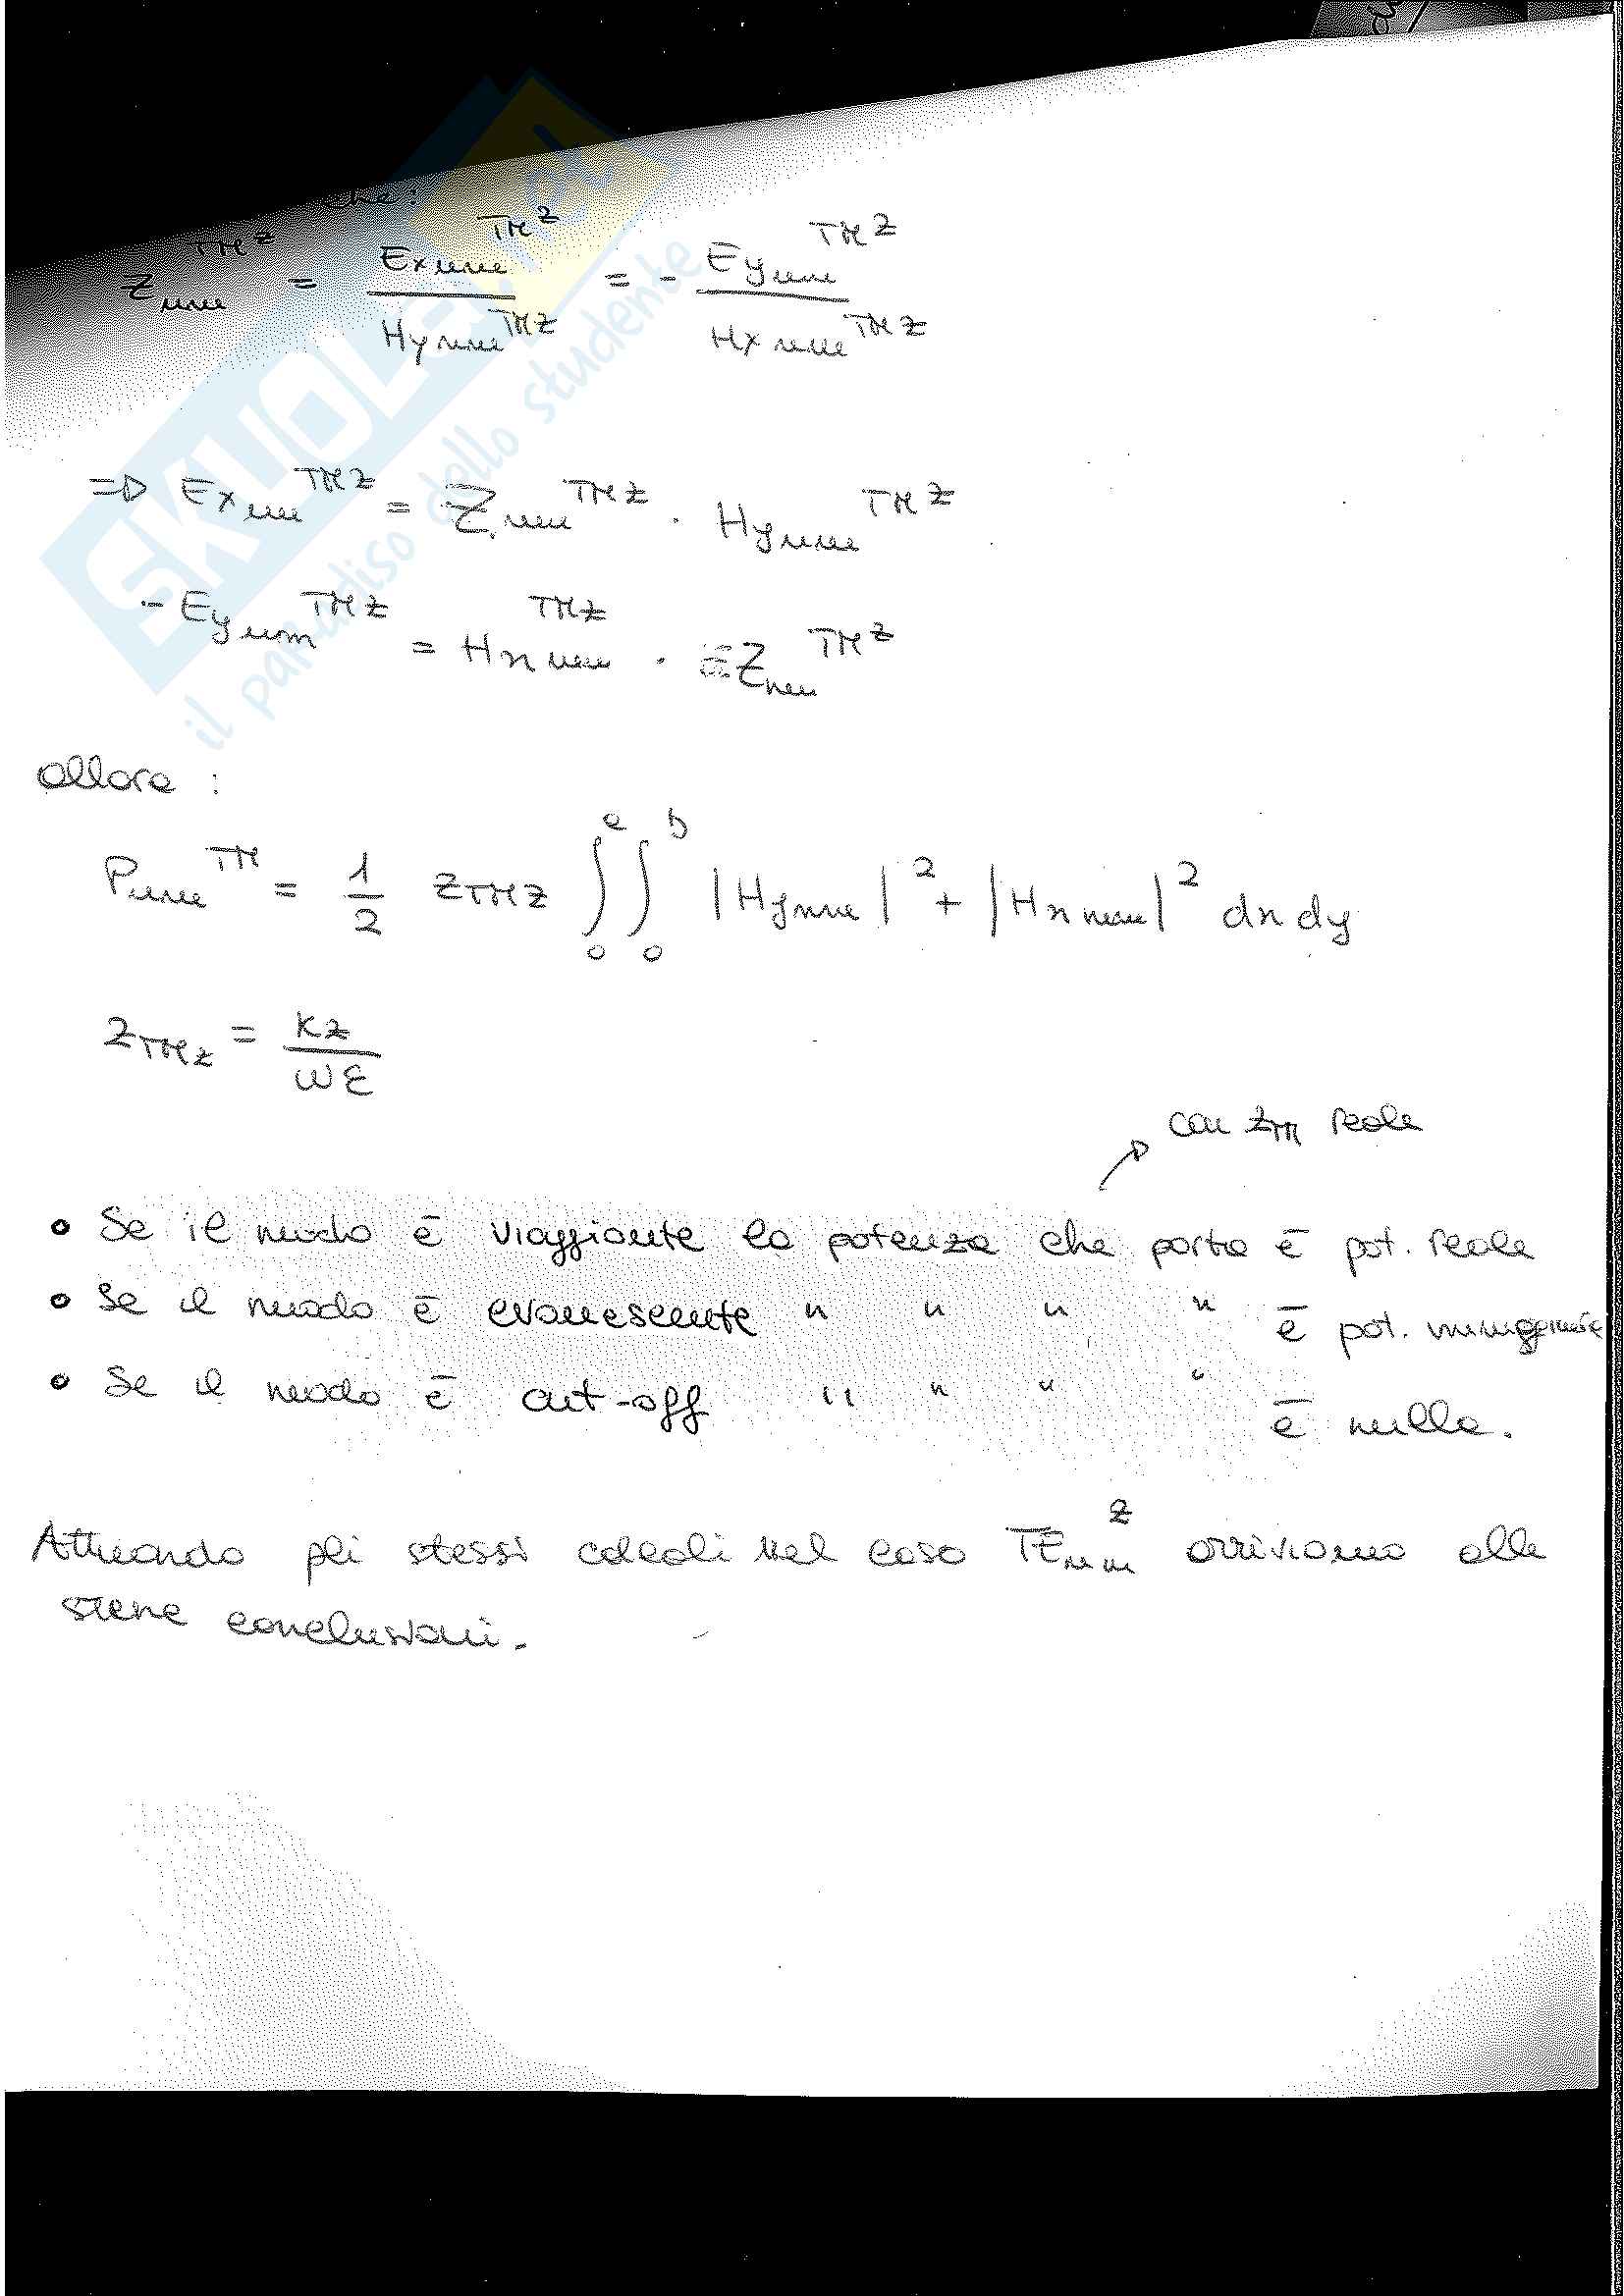 che:
Z_nm^TMz = Ex_nm^TMz / Hy_nm^TMz = - Ey_nm^TMz / Hx_nm^TMz
=> Ex_nm^TMz = Z_nm^TMz · Hy_nm^TMz
- Ey_nm^TMz = Hx_nm^TMz · Z_nm^TMz
allora :
P_nm^TM = 1/2 Z_TMz ∫_0^a ∫_0^b |Hy_nm|^2 + |Hx_nm|^2 dx dy
Z_TMz = kz / ωε
con Z_TM reale
• Se il modo è viaggiante la potenza che porta è pot. reale
• Se il modo è evanescente " " " " è pot. immaginaria
• Se il modo è cut-off " " " " è nulla.
Attuando gli stessi calcoli nel caso TE_nm^z arriviamo alle
stesse conclusioni.
SKUOLA.net
il paradiso dello studente